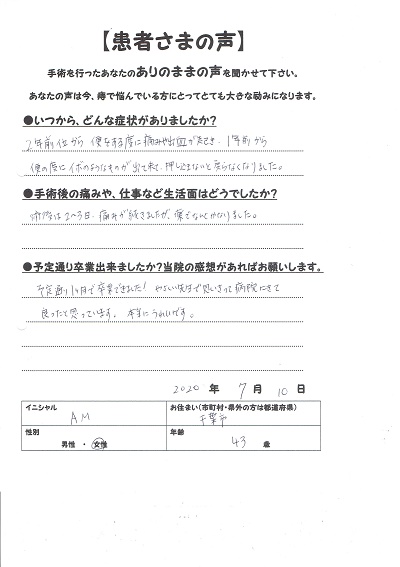 【患者さまの声】
手術を行ったあなたのありのままの声を聞かせて下さい。
あなたの声は今、痔で悩んでいる方にとってとても大きな励みになります。
●いつから、どんな症状がありましたか?
2年前位から 便をする度に痛みや出血が起き、1年前から
便の度にイボのようなものが出て来て、押し込まないと戻らなくなりました。
●手術後の痛みや、仕事など生活面はどうでしたか?
術後は2〜3日、痛みが続きましたが、薬でなんとかなりました。
●予定通り卒業出来ましたか?当院の感想があればお願いします。
予定通り1ヶ月で卒業できました! やさしい先生で思いきって病院にきて
良かったと思っています。本当にうれしいです。
2020 年 7 月 10 日
イニシャル お住まい(市町村・県外の方は都道府県)
AM 千葉市
性別 年齢
男性 ・ 女性 43 歳